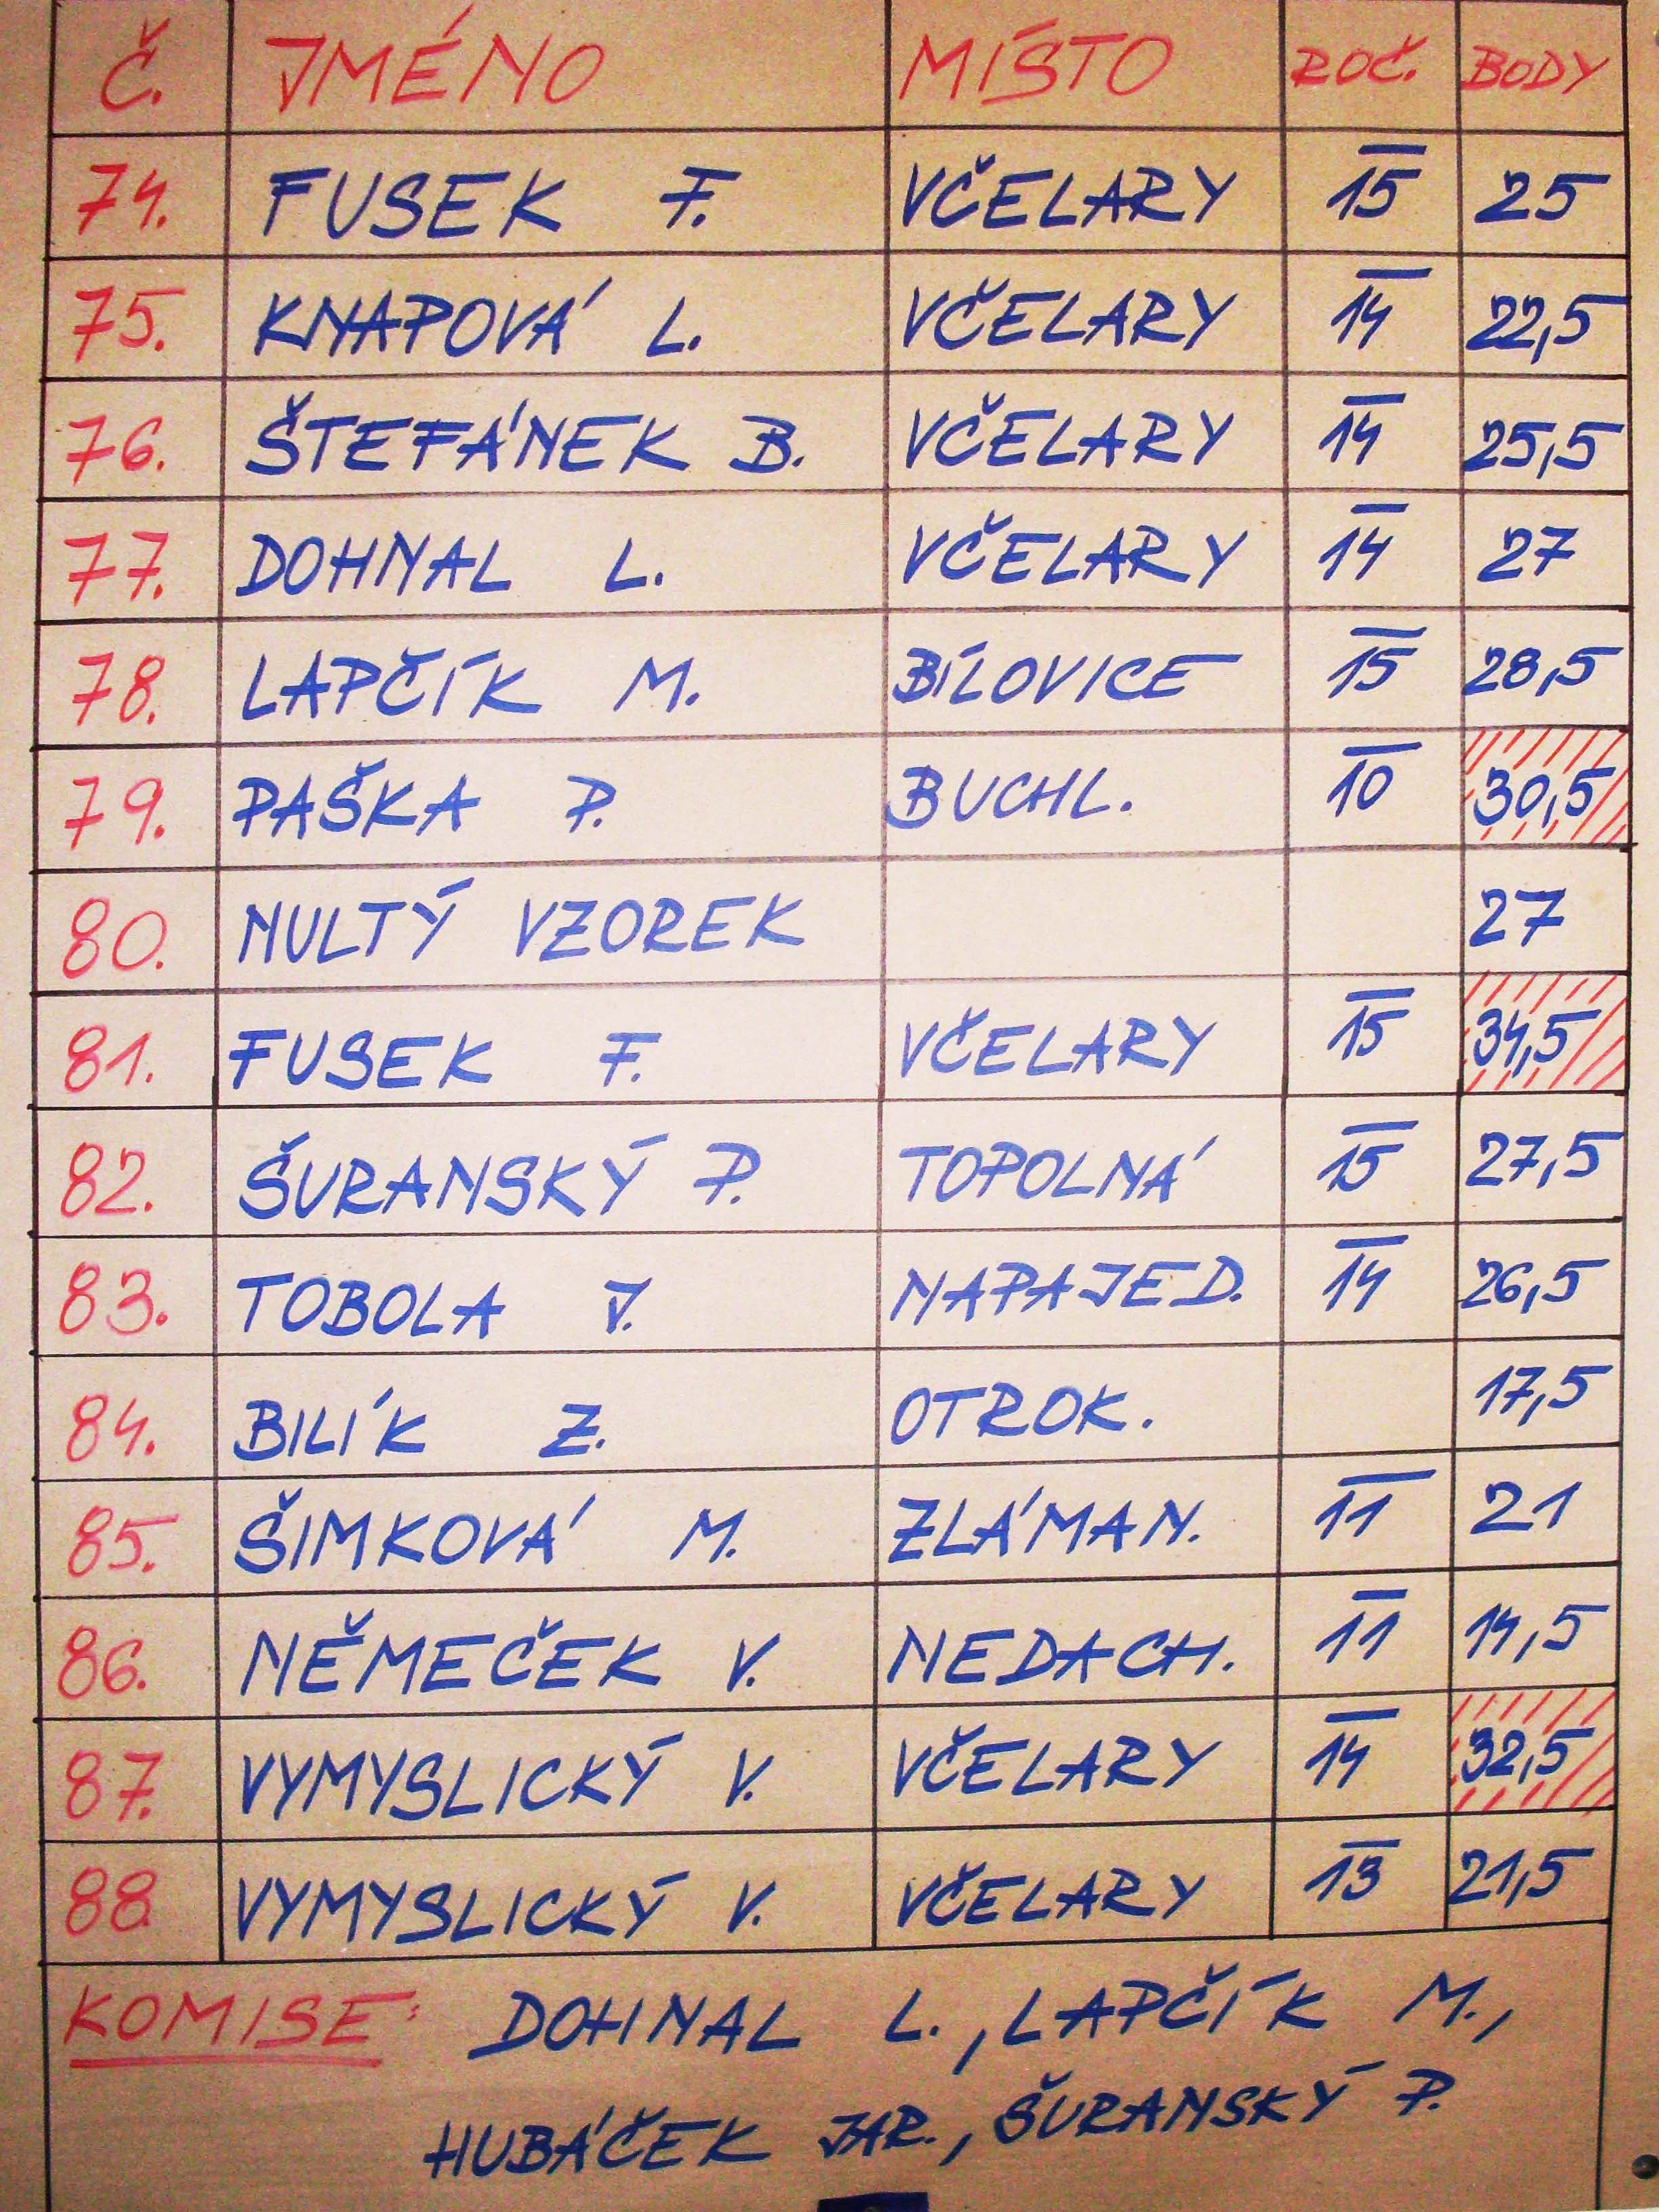 Č. JMÉNO MÍSTO ROČ. BODY
74. FUSEK F. VČELARY 15 25
75. KNAPOVÁ L. VČELARY 14 22,5
76. ŠTEFÁNEK B. VČELARY 14 25,5
77. DOHNAL L. VČELARY 14 27
78. LAPČÍK M. BÍLOVICE 15 28,5
79. PAŠKA P. BUCHL. 10 30,5
80. NULTÝ VZOREK 27
81. FUSEK F. VČELARY 15 34,5
82. ŠURANSKÝ P. TOPOLNÁ 15 27,5
83. TOBOLA J. NAPAJED. 14 26,5
84. BILÍK Z. OTROK. 17,5
85. ŠIMKOVÁ M. ZLÁMAN. 11 21
86. NĚMEČEK V. NEDACH. 11 14,5
87. VYMYSLICKÝ V. VČELARY 14 32,5
88. VYMYSLICKÝ V. VČELARY 13 21,5
KOMISE: DOHNAL L., LAPČÍK M.,
HUBÁČEK JAR., ŠURANSKÝ P.